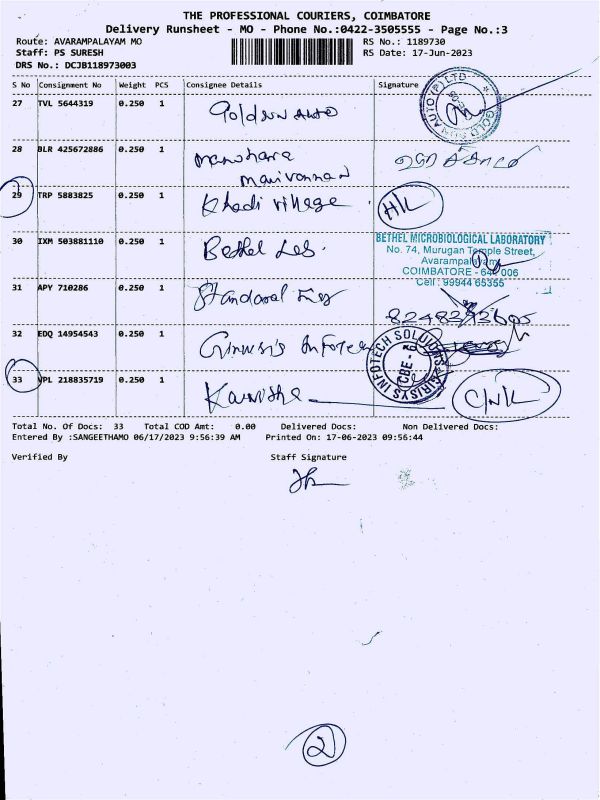 THE PROFESSIONAL COURIERS, COIMBATORE
Delivery Runsheet - MO - Phone No.:0422-3505555 - Page No.:3
Route: AVARAMPALAYAM MO
RS No.: 1189730
Staff: PS SURESH
RS Date: 17-Jun-2023
DRS No.: DCJB118973003
S No Consignment No Weight PCS Consignee Details Signature
27 TVL 5644319 0.250 1 Golden Auto
28 BLR 425672886 0.250 1 Manohara
manivannan
29 TRP 5883825 0.250 1 Khadi village
30 IXM 503881110 0.250 1 Bethel Lab.
BETHEL MICROBIOLOGICAL LABORATORY
No. 74, Murugan Temple Street,
Avarampalayam
COIMBATORE - 641 006
Cell : 99944 65355
31 APY 710286 0.250 1 Standaral Eng
32 EDQ 14954543 0.250 1 Infotech
INFOTECH SOLUTIONS
CBE - 6
33 VPL 218835719 0.250 1 Kanisha
Total No. Of Docs: 33 Total COD Amt: 0.00 Delivered Docs: Non Delivered Docs:
Entered By :SANGEETHAMO 06/17/2023 9:56:39 AM Printed On: 17-06-2023 09:56:44
Verified By Staff Signature
2